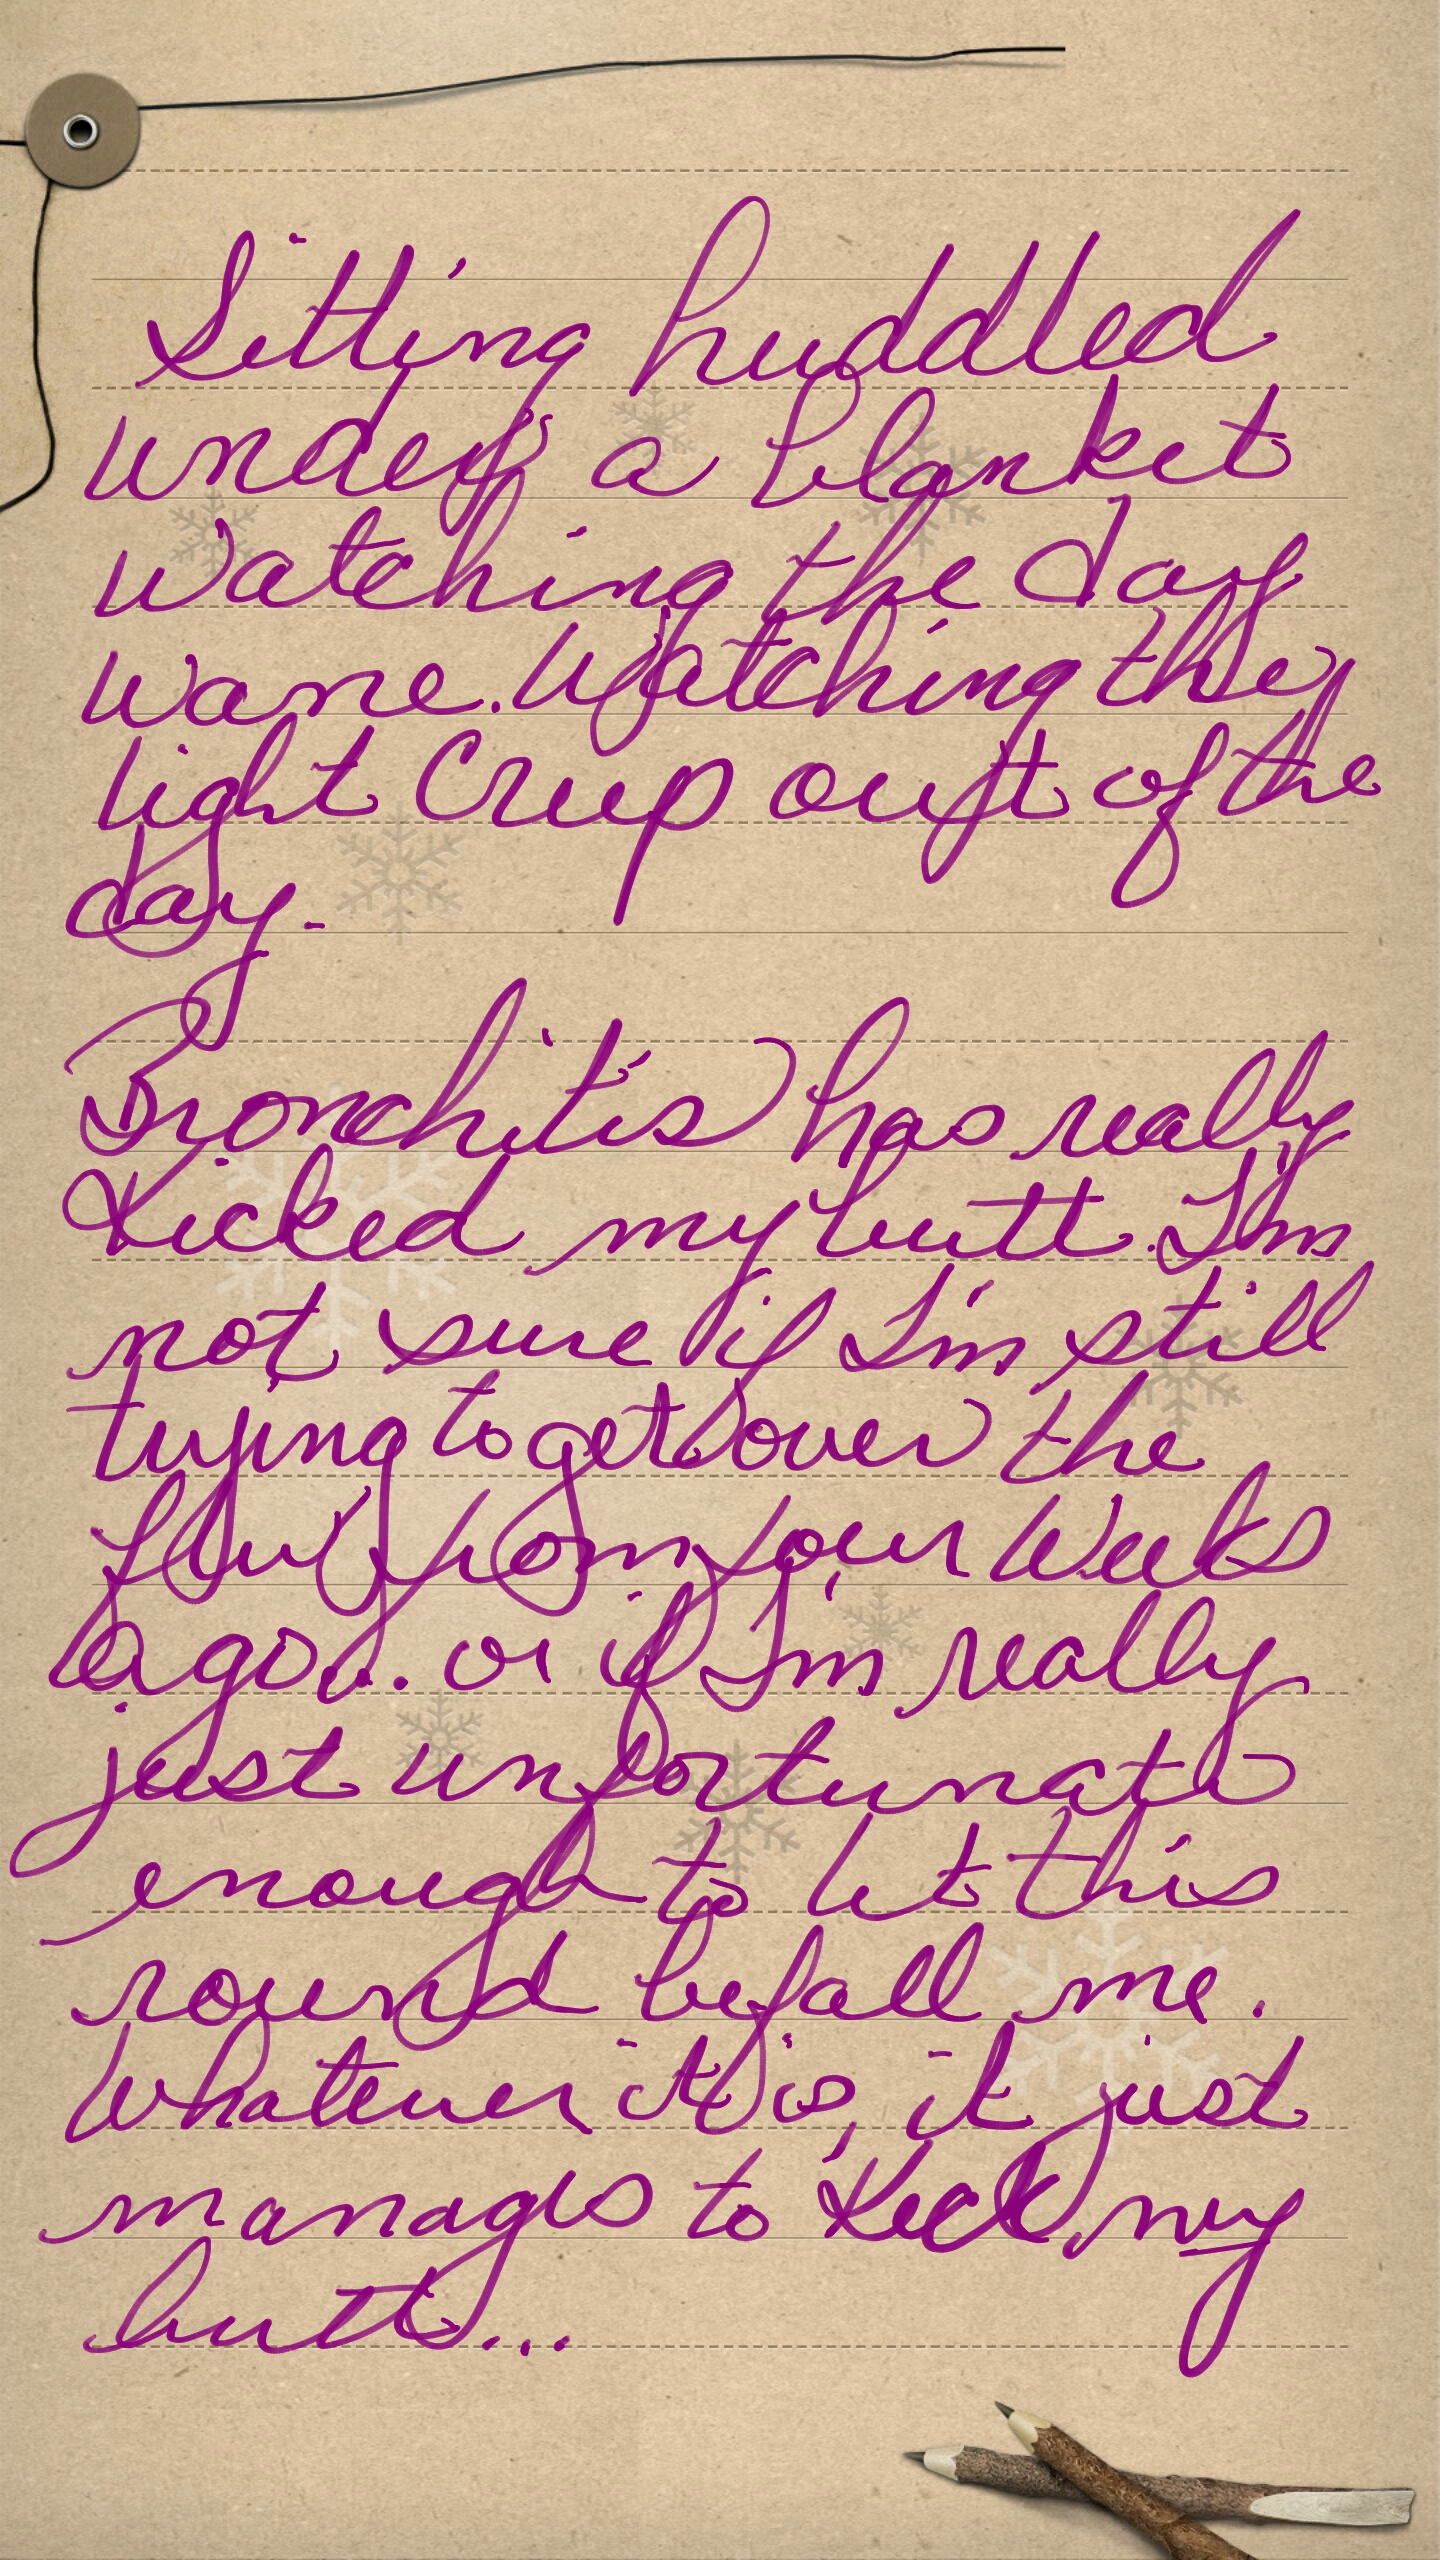 Sitting huddled
under a blanket
watching the day
wane. Watching the
light creep out of the
day.
Bronchitis has really
kicked my butt. I'm
not sure if I'm still
trying to get over the
flu from four weeks
ago... or if I'm really
just unfortunate
enough to let this
round befall me.
Whatever it is, it just
manages to kick my
butt...